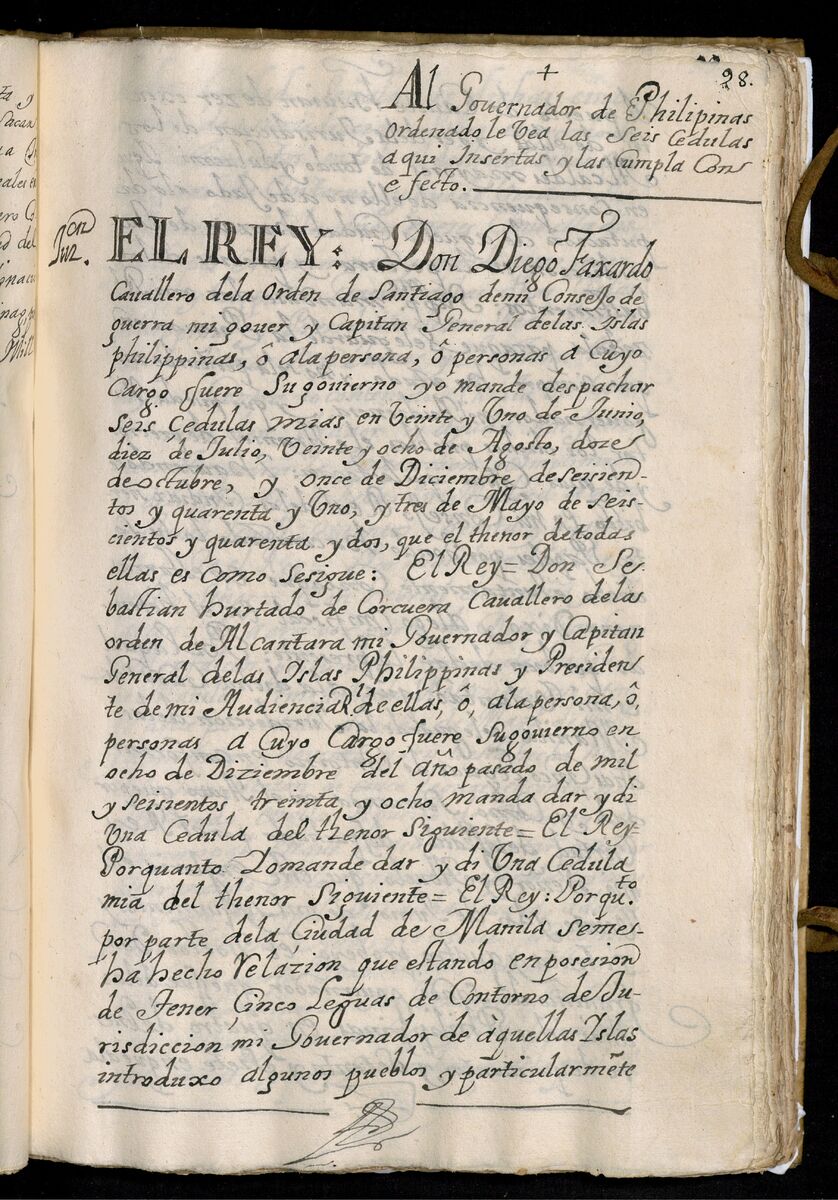 28.
+
Al Gouernador de Philipinas
ordenadole Vea las seis Cedulas
aqui Insertas y las Cumpla Con
efecto.
Jurz.on
EL REY: Don Diego Faxardo
Cauallero dela Orden de Santiago demi Consejo de
guerra mi gouer y Capitan General delas Islas
philippinas, ô ala persona, ô personas à Cuyo
Cargo fuere Su gouierno yo mande despachar
seis Cedulas mias en Veinte y Uno de Junio,
diez de Julio, Veinte y ocho de Agosto, doze
de octubre, y once de Diciembre de seisien-
tos y quarenta y Uno, y tres de Mayo de seis-
cientos y quarenta y dos, que el thenor de todas
ellas es como sesigue: El Rey= Don Se-
bastian hurtado de Corcuera Cauallero delas
orden de Alcantara mi Gouernador y Capitan
General delas Islas Philippinas y Presiden
te de mi Audiencia Rl de ellas, ô, ala persona, ô,
personas a Cuyo Cargo fuere Su gouierno en
ocho de Diziembre del año pasado de mil
y seisientos treinta y ocho manda dar y di
Una Cedula del thenor siguiente= El Rey=
Porquanto Yo mande dar y di Una Cedula
mia del thenor siguiente= El Rey: Porqu.to
por parte dela Ciudad de Manila seme-
ha hecho Relazion que estando en posesion
de Tener Cinco Leguas de Contorno de Ju-
risdiccion mi Gouernador de aquellas Islas
introduxo algunos pueblos y particularmẽte